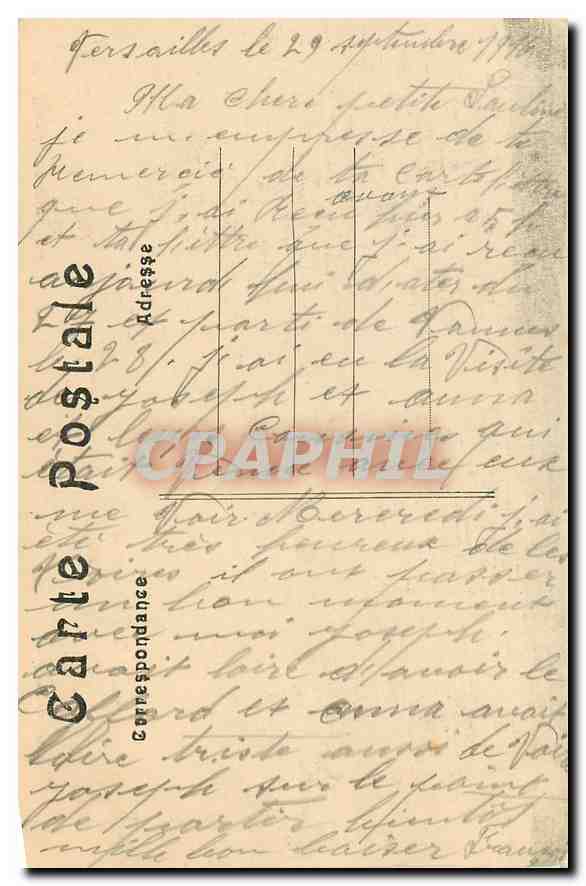 Versailles le 29 septembre 191
Ma chere petite Pauline
je m'empresse de te
remercié de ta carte lettre
que j'ai recu hier avant
et ta lettre que j'ai recu
aujourd hui dater du
27 et parti de Vannes
le 28. j'ai eu la Visite
de joseph et anna
et le Cousin qui
était venue avec eux
me Voir Mercredi j'ai
été très heureux de les
Voires il ont passer
un bon moment
avec moi joseph
avait loire d'avoir le
Caffard et anna avait
loire triste aussi de Voir
joseph sur le point
de partir bientôt
mille bon baiser
Carte Postale
Correspondance
Adresse
CPAPHIL